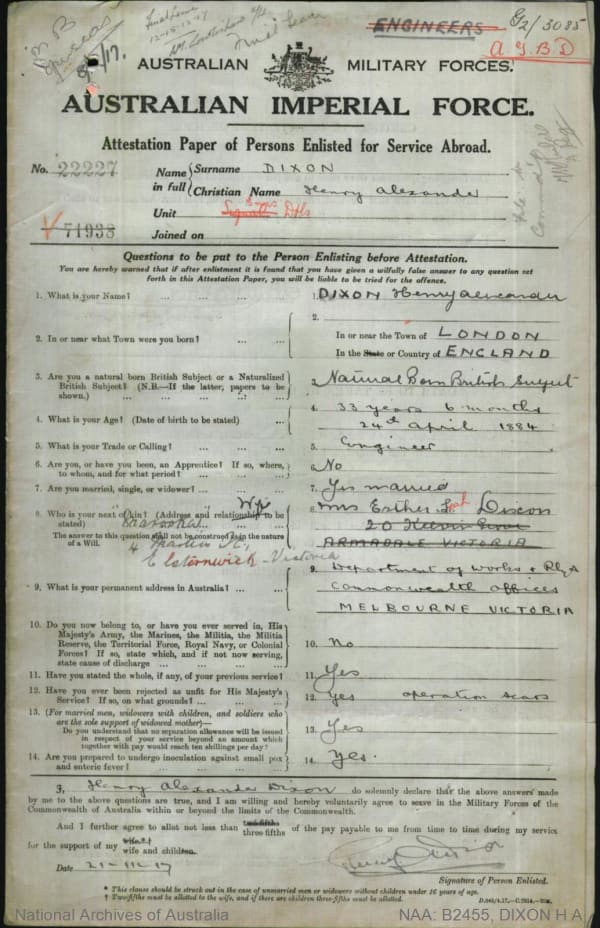 ENGINEERS G2/3085
A.G.B.D
/17.
AUSTRALIAN MILITARY FORCES.
AUSTRALIAN IMPERIAL FORCE.
Attestation Paper of Persons Enlisted for Service Abroad.
No. 22227
Name in full { Surname DIXON
Christian Name Henry Alexander
Unit Engrs Dtls
71938 Joined on
Questions to be put to the Person Enlisting before Attestation.
You are hereby warned that if after enlistment it is found that you have given a wilfully false answer to any question set
forth in this Attestation Paper, you will be liable to be tried for the offence.
1. What is your Name? ... ... ... 1. DIXON Henry Alexander
2. In or near what Town were you born? ... ... 2. In or near the Town of LONDON
In the State or Country of ENGLAND
3. Are you a natural born British Subject or a Naturalized
British Subject? (N.B.—If the latter, papers to be
shown.) ... ... ... ... 3. Natural Born British Subject
4. What is your Age? (Date of birth to be stated) ... 4. 33 years 6 months
24th April 1884
5. What is your Trade or Calling? ... ... 5. Engineer
6. Are you, or have you been, an Apprentice? If so, where,
to whom, and for what period? ... ... 6. No
7. Are you married, single, or widower? ... ... 7. Yes married
8. Who is your next of kin? (Address and relationship to be
stated) ... ... ... 8. Mrs Esther Leah Dixon
Wife
20
ARMADALE VICTORIA
The answer to this question shall not be construed as in the nature
of a Will.
4 Martin St,
Elsternwick - Victoria
9. What is your permanent address in Australia? ... ... 9. Department of Works & Rlys
Commonwealth offices
MELBOURNE VICTORIA
10. Do you now belong to, or have you ever served in, His
Majesty's Army, the Marines, the Militia, the Militia
Reserve, the Territorial Force, Royal Navy, or Colonial
Forces? If so, state which, and if not now serving,
state cause of discharge ... ... ... 10. No
11. Have you stated the whole, if any, of your previous service? 11. Yes
12. Have you ever been rejected as unfit for His Majesty's
Service? If so, on what grounds? ... ... 12. Yes operation scars
13. (For married men, widowers with children, and soldiers who
are the sole support of widowed mother)—
Do you understand that no separation allowance will be issued
in respect of your service beyond an amount which
together with pay would reach ten shillings per day? 13. Yes
14. Are you prepared to undergo inoculation against small pox
and enteric fever? ... ... ... 14. Yes.
I, Henry Alexander Dixon do solemnly declare that the above answers made
by me to the above questions are true, and I am willing and hereby voluntarily agree to serve in the Military Forces of the
Commonwealth of Australia within or beyond the limits of the Commonwealth.
And I further agree to allot not less than two-fifths three fifths of the pay payable to me from time to time during my service
for the support of my wife* wife and children.
Date 21-11-17
Signature of Person Enlisted.
* This clause should be struck out in the case of unmarried men or widowers without children under 16 years of age.
† Two-fifths must be allotted to the wife, and if there are children three-fifths must be allotted.
National Archives of Australia NAA: B2455, DIXON H A